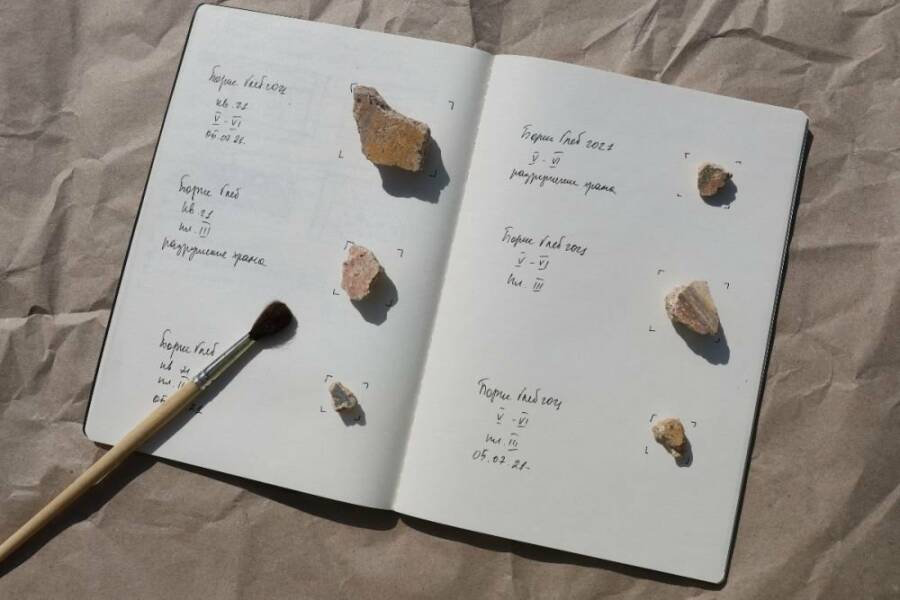 Борис Глеб 2021
кв. 21
V - VI
05.07.21.
Борис Глеб
кв. 21
пл. III
разрушение храма
Борис Глеб
кв 21
пл.
05
21
Борис Глеб 2021
V - VI
разрушение храма
Борис Глеб 2021
V - VI
пл. III
Борис Глеб 2021
V - VI
пл. III
05.07.21.